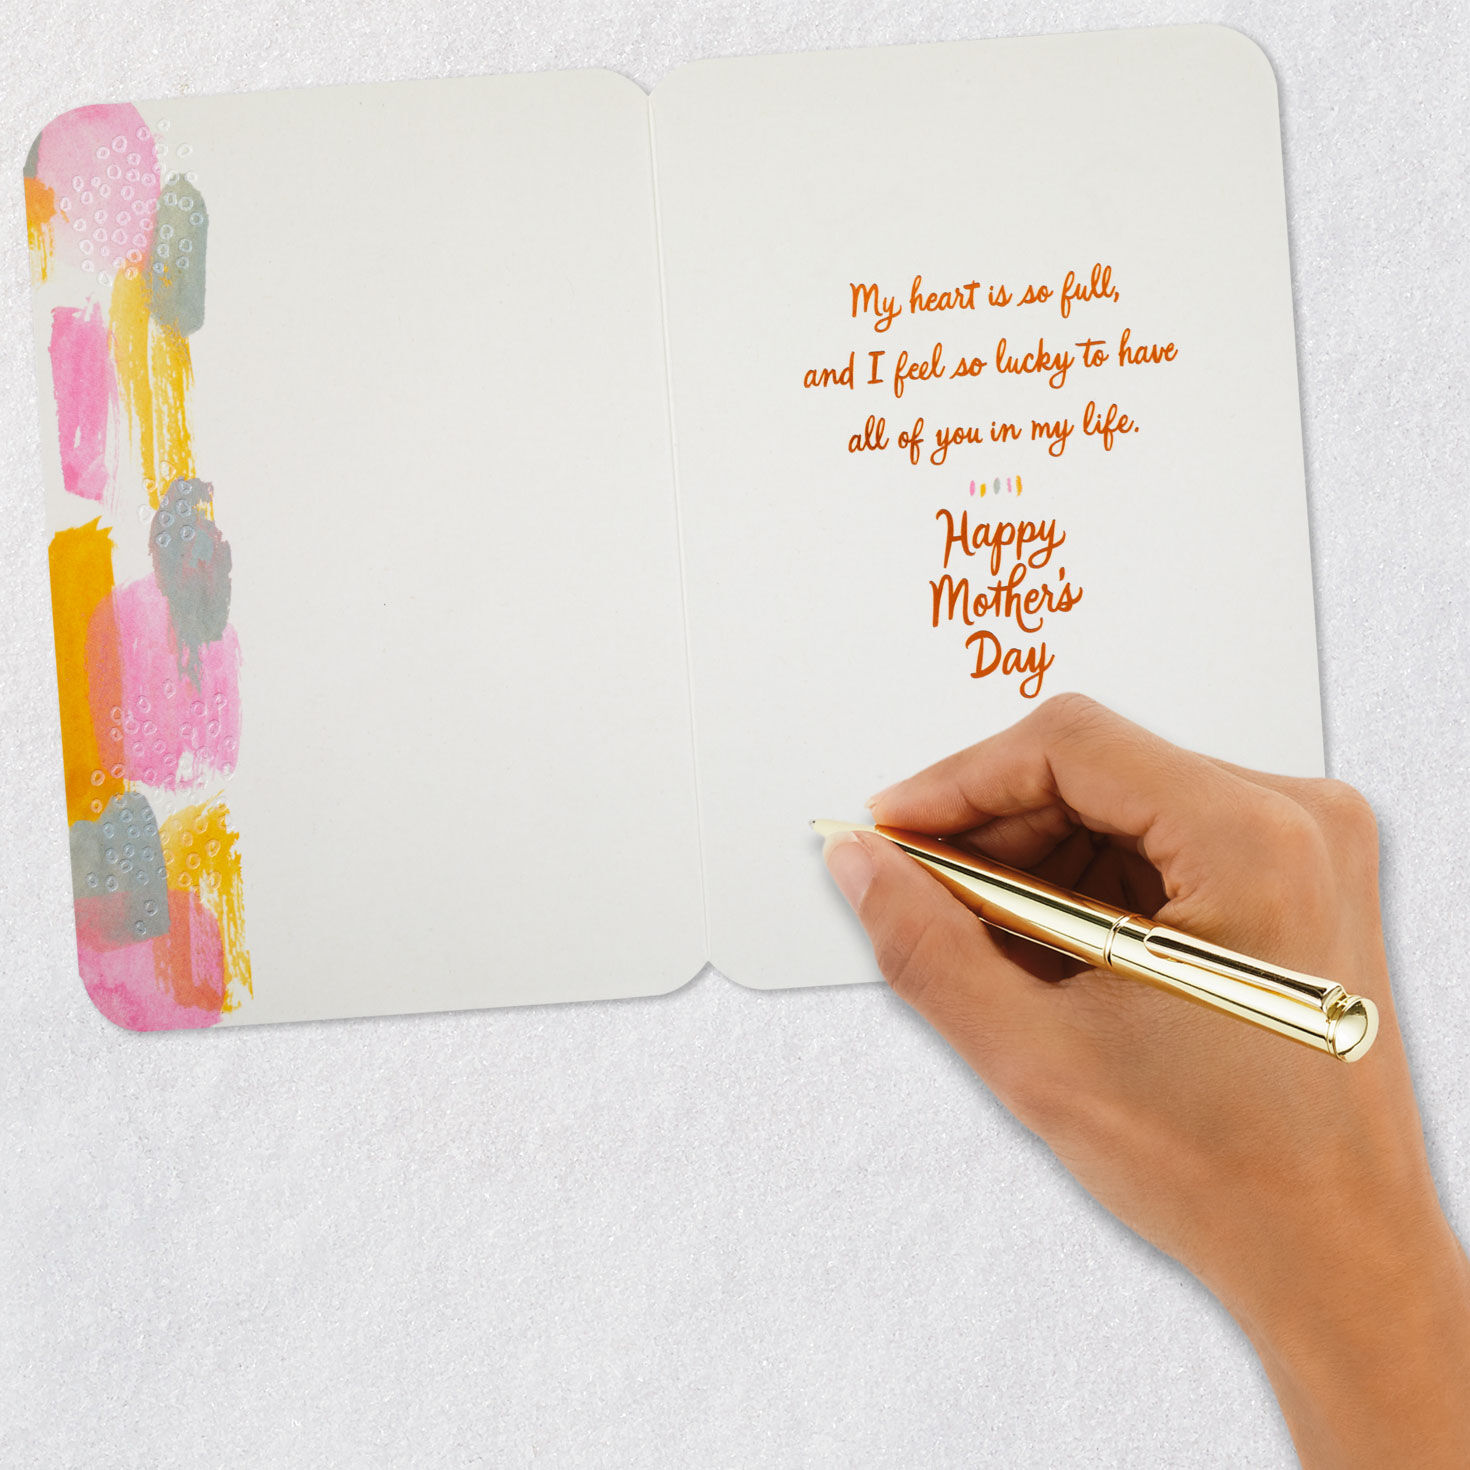 My heart is so full,
and I feel so lucky to have
all of you in my life.
Happy
Mother's
Day